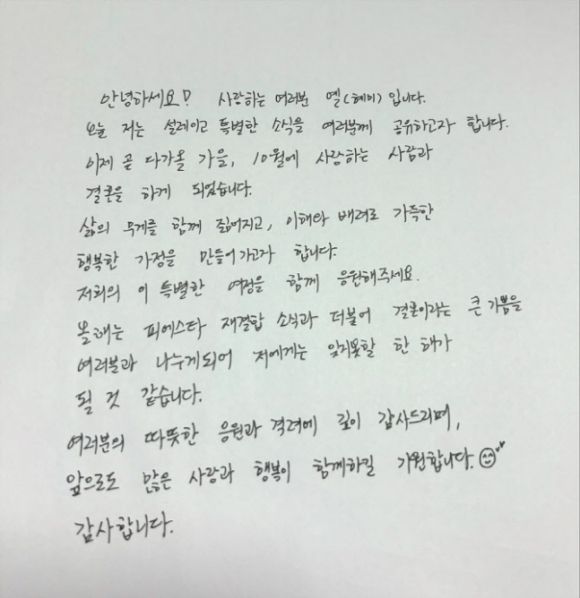 안녕하세요! 사랑하는 여러분 옐(혜미) 입니다.
오늘 저는 설레이고 특별한 소식을 여러분께 공유하고자 합니다.
이제 곧 다가올 가을, 10월에 사랑하는 사람과
결혼을 하게 되었습니다.
삶의 무게를 함께 짊어지고, 이해와 배려로 가득한
행복한 가정을 만들어가고자 합니다.
저희의 이 특별한 여정을 함께 응원해주세요.
올해는 피에스타 재결합 소식과 더불어 결혼이라는 큰 기쁨을
여러분과 나누게되어 저에게는 잊지못할 한 해가
될 것 같습니다.
여러분의 따뜻한 응원과 격려에 깊이 감사드리며,
앞으로도 많은 사랑과 행복이 함께하길 기원합니다.
감사합니다.